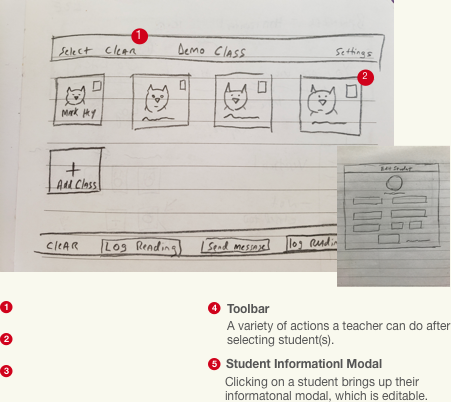 1
Select Clear Demo Class Settings
2
Mark Hy
+
Add Class
Edit Student
Clear Log Reading Send message log Readin
1
2
3
4 Toolbar
A variety of actions a teacher can do after
selecting student(s).
5 Student Informationl Modal
Clicking on a student brings up their
informatonal modal, which is editable.